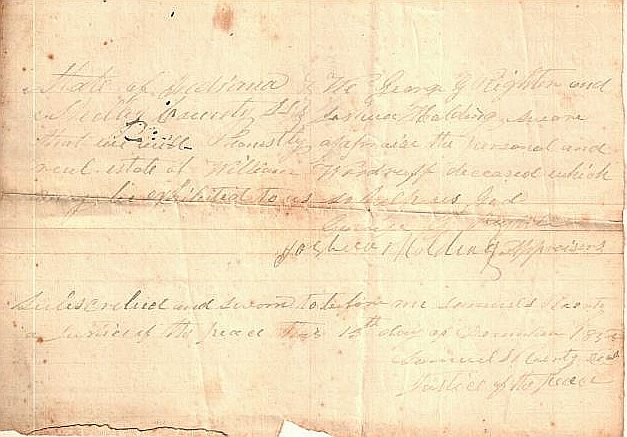 State of Indiana } We George G Righter and
County SS } Joshua Holding Swore
that we will honestly appraise the personal and
real estate of William Woodruff deceased which
may be exhibited to us So help us God
George G Righter
Joshua Holding Appraisers
Subscribed and sworn to before me Samuel
a Justice of the peace this 15th day of December
Samuel Seal
Justice of the peace